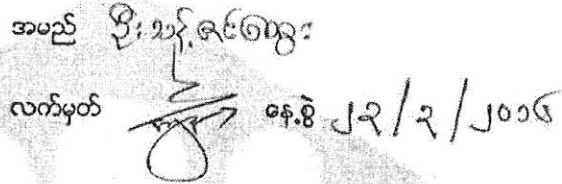 အမည် ဦးသန့်ဇင်ထွေး
လက်မှတ် နေ့စွဲ ၂၃/၃/၂၀၁၆